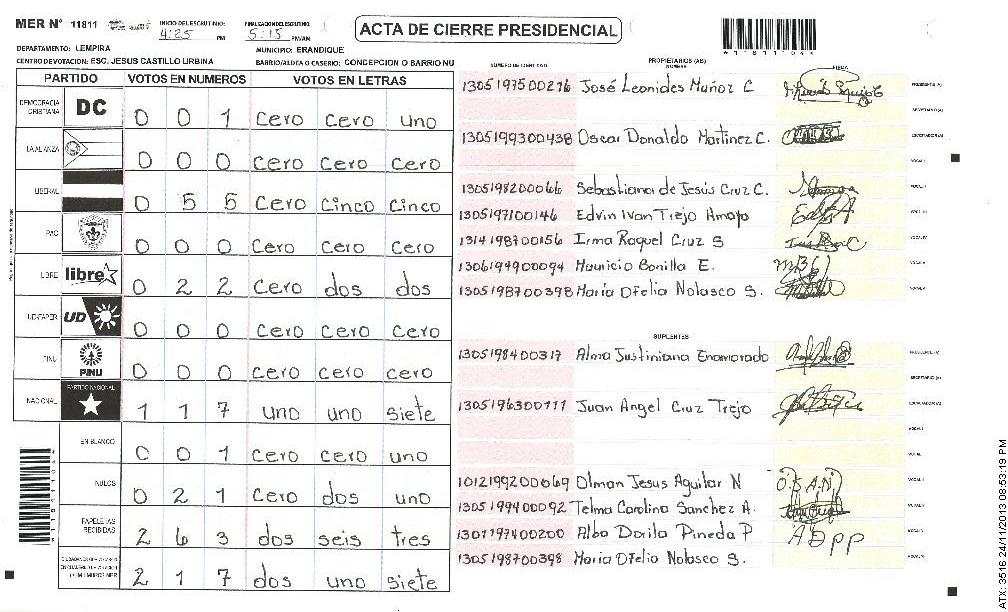 MER N° 11811 INICIO DEL ESCRUTINIO: 4:25 PM FINALIZACION DEL ESCRUTINIO: 5:15 PM/AM ACTA DE CIERRE PRESIDENCIAL
DEPARTAMENTO: LEMPIRA MUNICIPIO: ERANDIQUE
CENTRO DE VOTACION: ESC. JESUS CASTILLO URBINA BARRIO/ALDEA O CASERIO: CONCEPCION O BARRIO NU
PARTIDO VOTOS EN NUMEROS VOTOS EN LETRAS
DEMOCRACIA CRISTIANA DC 0 0 1 cero cero uno
LA ALIANZA 0 0 0 cero cero cero
LIBERAL 0 5 5 cero cinco cinco
PAC 0 0 0 cero cero cero
LIBRE libre 0 2 2 cero dos dos
UD-FAPER UD 0 0 0 cero cero cero
PINU PINU 0 0 0 cero cero cero
NACIONAL PARTIDO NACIONAL 1 1 7 uno uno siete
EN BLANCO 0 0 1 cero cero uno
NULOS 0 2 1 cero dos uno
PAPELETAS RECIBIDAS 2 6 3 dos seis tres
2 1 7 dos uno siete
NUMERO DE IDENTIDAD PROPIETARIOS (AS) NOMBRE FIRMA
1305197500276 José Leonides Muñoz C PRESIDENTE (A)
SECRETARIO (A)
1305199300438 Oscar Donaldo Martinez C. ESCRUTADOR (A)
VOCAL I
1305198200066 Sebastiana de Jesús Cruz C. VOCAL II
1305197100146 Edvin Ivan Trejo Amaya VOCAL III
1314198700156 Irma Raquel Cruz S VOCAL IV
1306194900094 Mauricio Bonilla E. MBE VOCAL V
1305198700398 Maria Ofelia Nolasco S. VOCAL VI
SUPLENTES
1305198400317 Alma Justiniana Enamorado PRESIDENTE (A)
SECRETARIO (A)
1305196300111 Juan Angel Cruz Trejo ESCRUTADOR (A)
VOCAL I
VOCAL II
1012199200069 Olman Jesus Aguilar N O.J.A.N VOCAL III
1305199400092 Telma Carolina Sanchez A. VOCAL IV
1301197400200 Alba Dorila Pineda P ADPP VOCAL V
1305198700398 Maria Ofelia Nolasco S. VOCAL VI
ATX: 3516 24/11/2013 08:53:19 PM